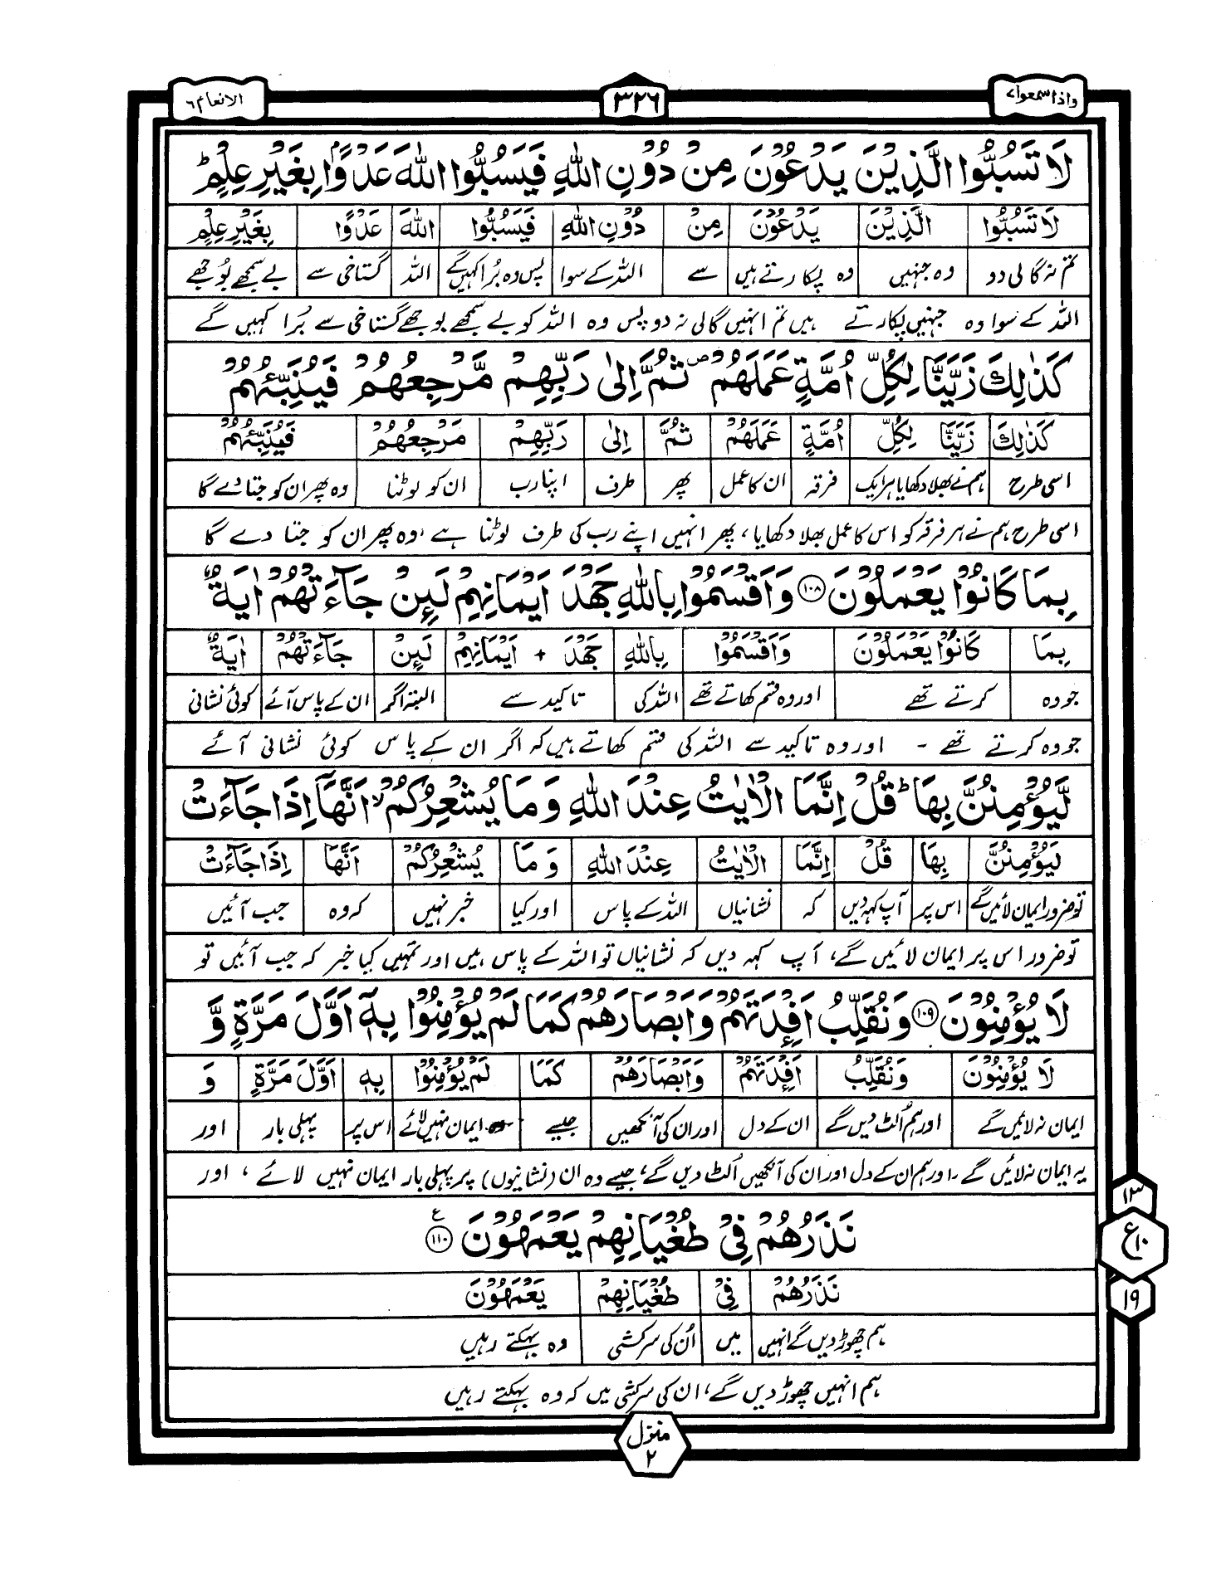 واذا سمعوا۷ ۳۲۶ الانعام ۶
لَا تَسُبُّوا الَّذِيْنَ يَدْعُوْنَ مِنْ دُوْنِ اللّٰهِ فَيَسُبُّوا اللّٰهَ عَدْوًۢا بِغَيْرِ عِلْمٍ ؕ
لَا تَسُبُّوا الَّذِيْنَ يَدْعُوْنَ مِنْ دُوْنِ اللّٰهِ فَيَسُبُّوا اللّٰهَ عَدْوًا بِغَيْرِ عِلْمٍ
تم نہ گالی دو وہ جنہیں وہ پکارتے ہیں سے اللہ کے سوا پس وہ بُرا کہیں گے اللہ گستاخی سے بے سمجھے بوجھے
اللہ کے سوا وہ جنہیں پکارتے ہیں تم انہیں گالی نہ دو پس وہ اللہ کو بے سمجھے بوجھے گستاخی سے بُرا کہیں گے
كَذٰلِكَ زَيَّنَّا لِكُلِّ اُمَّةٍ عَمَلَهُمْ ۪ ثُمَّ اِلٰى رَبِّهِمْ مَّرْجِعُهُمْ فَيُنَبِّئُهُمْ
كَذٰلِكَ زَيَّنَّا لِكُلِّ اُمَّةٍ عَمَلَهُمْ ثُمَّ اِلٰى رَبِّهِمْ مَرْجِعُهُمْ فَيُنَبِّئُهُمْ
اسی طرح ہم نے بھلا دکھایا ہر ایک فرقہ ان کا عمل پھر طرف اپنا رب ان کو لوٹنا وہ پھر ان کو جتا دے گا
اسی طرح ہم نے ہر فرقہ کو اس کا عمل بھلا دکھایا، پھر انہیں اپنے رب کی طرف لوٹنا ہے، وہ پھر ان کو جتا دے گا
بِمَا كَانُوْا يَعْمَلُوْنَ ۝۱۰۸ وَاَقْسَمُوْا بِاللّٰهِ جَهْدَ اَيْمَانِهِمْ لَئِنْ جَآءَتْهُمْ اٰيَةٌ
بِمَا كَانُوْا يَعْمَلُوْنَ وَاَقْسَمُوْا بِاللّٰهِ جَهْدَ + اَيْمَانِهِمْ لَئِنْ جَآءَتْهُمْ اٰيَةٌ
جو وہ کرتے تھے اور وہ قسم کھاتے تھے اللہ کی تاکید سے البتہ اگر ان کے پاس آئے کوئی نشانی
جو وہ کرتے تھے - اور وہ تاکید سے اللہ کی قسم کھاتے ہیں کہ اگر ان کے پاس کوئی نشانی آئے
لَّيُؤْمِنُنَّ بِهَا ؕ قُلْ اِنَّمَا الْاٰيٰتُ عِنْدَ اللّٰهِ وَمَا يُشْعِرُكُمْ ۙ اَنَّهَاۤ اِذَا جَآءَتْ
لَيُؤْمِنُنَّ بِهَا قُلْ اِنَّمَا الْاٰيٰتُ عِنْدَ اللّٰهِ وَمَا يُشْعِرُكُمْ اَنَّهَا اِذَا جَآءَتْ
تو ضرور ایمان لائیں گے اس پر آپ کہہ دیں کہ نشانیاں اللہ کے پاس اور کیا خبر نہیں کہ وہ جب آئیں
تو ضرور اس پر ایمان لائیں گے، آپ کہہ دیں کہ نشانیاں تو اللہ کے پاس ہیں اور تمہیں کیا خبر کہ جب آئیں تو
لَا يُؤْمِنُوْنَ ۝۱۰۹ وَنُقَلِّبُ اَفْـِٕدَتَهُمْ وَاَبْصَارَهُمْ كَمَا لَمْ يُؤْمِنُوْا بِهٖۤ اَوَّلَ مَرَّةٍ وَّ
لَا يُؤْمِنُوْنَ وَنُقَلِّبُ اَفْـِٕدَتَهُمْ وَاَبْصَارَهُمْ كَمَا لَمْ يُؤْمِنُوْا بِهٖ اَوَّلَ مَرَّةٍ وَ
ایمان نہ لائیں گے اور ہم اُلٹ دیں گے ان کے دل اور ان کی آنکھیں جیسے ایمان نہیں لائے اس پر پہلی بار اور
یہ ایمان نہ لائیں گے۔ اور ہم ان کے دل اور ان کی آنکھیں اُلٹ دیں گے، جیسے وہ ان (نشانیوں) پر پہلی بار ایمان نہیں لائے، اور
نَذَرُهُمْ فِيْ طُغْيَانِهِمْ يَعْمَهُوْنَ ۝۱۱۰ ع
نَذَرُهُمْ فِيْ طُغْيَانِهِمْ يَعْمَهُوْنَ
ہم چھوڑ دیں گے انہیں میں اُن کی سرکشی وہ بہکتے رہیں
ہم انہیں چھوڑ دیں گے، ان کی سرکشی میں کہ وہ بہکتے رہیں
۱۳
ع۱۰
۱۹
منزل
۲